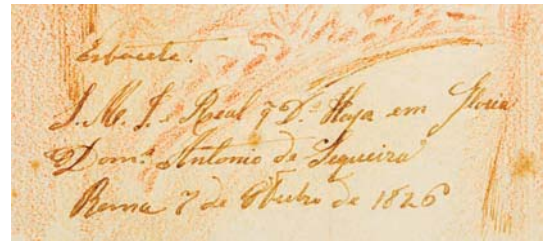 Esboceto.
S. M. I. e Real q̃ D.ˢ Haja em Gloria
Dom.ˢ Antonio de Sequeira
Roma 7 de 8bro de 1826